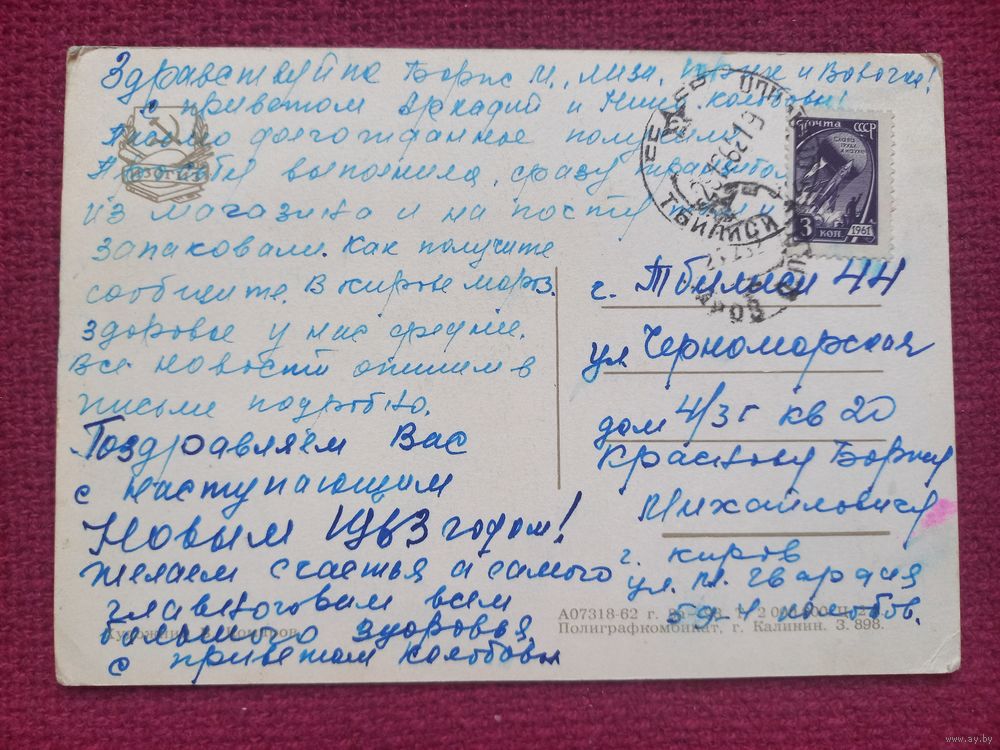 Здравствуйте Борис М., Лиза, и Вовочка!
с приветом Аркадий и Нина Колобовы!
Письмо долгожданное получили
выполнила, сразу
из магазина и на почту
запаковали. Как получите
сообщите. В Кирове мороз.
здоровье у нас средние.
Все новости опишем в
письме подробно.
Поздравляем Вас
с наступающим
Новым 1963 годом!
желаем счастья а самого
главного вам всем
большого здоровья.
с приветом Колобовы
ПОЧТА СССР
3 КОП.
1961
ТБИЛИСИ
г. Тбилиси 44
ул Черноморская
дом 4/3г кв 20
Борису
Михайловичу
г. Киров
ул. М. Гвардия
Колобов.
ИЗОГИЗ
Художник
А07318-62 г.
Полиграфкомбинат, г. Калинин. З. 898.
www.ay.by